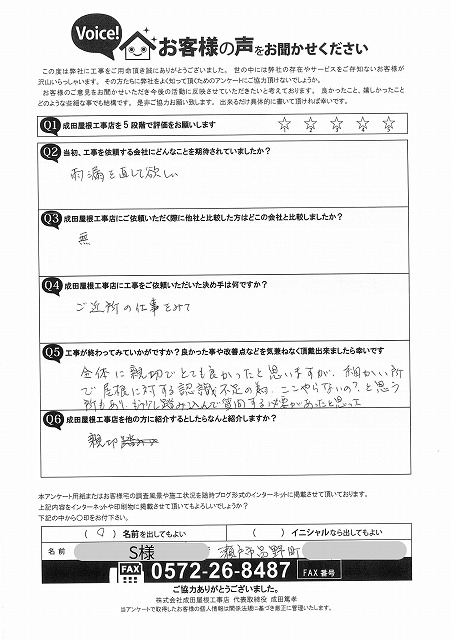 Voice!
お客様の声をお聞かせください
この度は弊社に工事をご用命頂き誠にありがとうございました。 世の中には弊社の存在やサービスをご存知ないお客様が
沢山いらっしゃいます。 その方たちに弊社をよく知って頂くためのアンケートにご協力頂けないでしょうか。
お客様のご意見をお聞かせいただき今後の活動に反映させていただきたいと考えております。 良かったこと、嬉しかったこと
どのような些細な事でも結構です。 是非ご協力お願い致します。 出来るだけ具体的に書いて頂ければ幸いです。
Q1 成田屋根工事店を5段階で評価をお願いします ☆ ☆ ☆ ☆ ☆
Q2 当初、工事を依頼する会社にどんなことを期待されていましたか？
雨漏を直して欲しい
Q3 成田屋根工事店にご依頼いただく際に他社と比較した方はどこの会社と比較しましたか？
無
Q4 成田屋根工事店に工事をご依頼いただいた決め手は何ですか？
ご近所の仕事をみて
Q5 工事が終わってみていかがですか？良かった事や改善点などを気兼ねなく頂戴出来ましたら幸いです
全体に親切でとても良かったと思いますが、細かい所
で屋根に対する認識不足の為、ここやらないの？と思う
所もあり、もう少し踏み込んで質問する必要があったと思って
Q6 成田屋根工事店を他の方に紹介するとしたらなんと紹介しますか？
親切
本アンケート用紙またはお客様宅の調査風景や施工状況を随時ブログ形式のインターネットに掲載させて頂いております。
上記内容をインターネットや印刷物に掲載させて頂いてもよろしいでしょうか？
下記の中から〇印をお付下さい。
( 〇 ) 名前を出してもよい ( ) イニシャルなら出してもよい
名前 S様 瀬戸市品野町
FAX 0572-26-8487 FAX番号
ご協力ありがとうございました。
株式会社成田屋根工事店 代表取締役 成田篤孝
当アンケートで取得したお客様の個人情報は関係法規に基づき厳正に管理いたします。